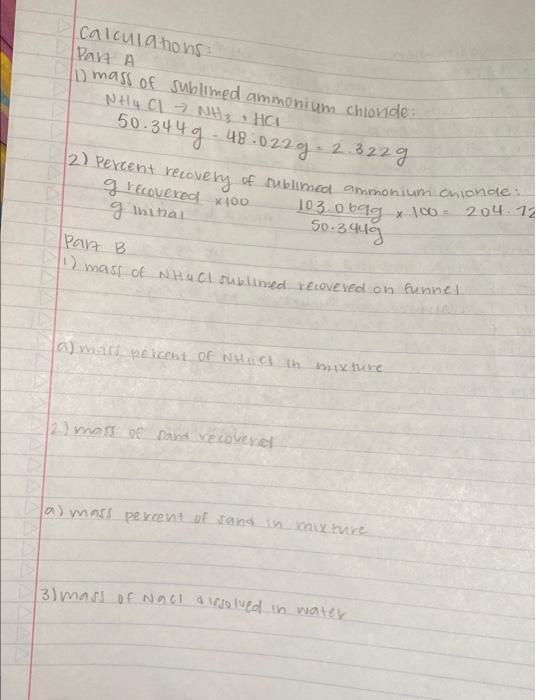 Calculations:
Part A
1) mass of sublimed ammonium chloride:
NH4 Cl → NH3 + HCl
50.344g - 48.022g = 2.322g
2) Percent recovery of sublimed ammonium chloride:
g recovered x100 103.069g x 100 = 204.72
g initial 50.344g
Part B
1) mass of NH4Cl sublimed recovered on funnel
a) mass percent of NH4Cl in mixture
2) mass of sand recovered
a) mass percent of sand in mixture
3) mass of NaCl dissolved in water